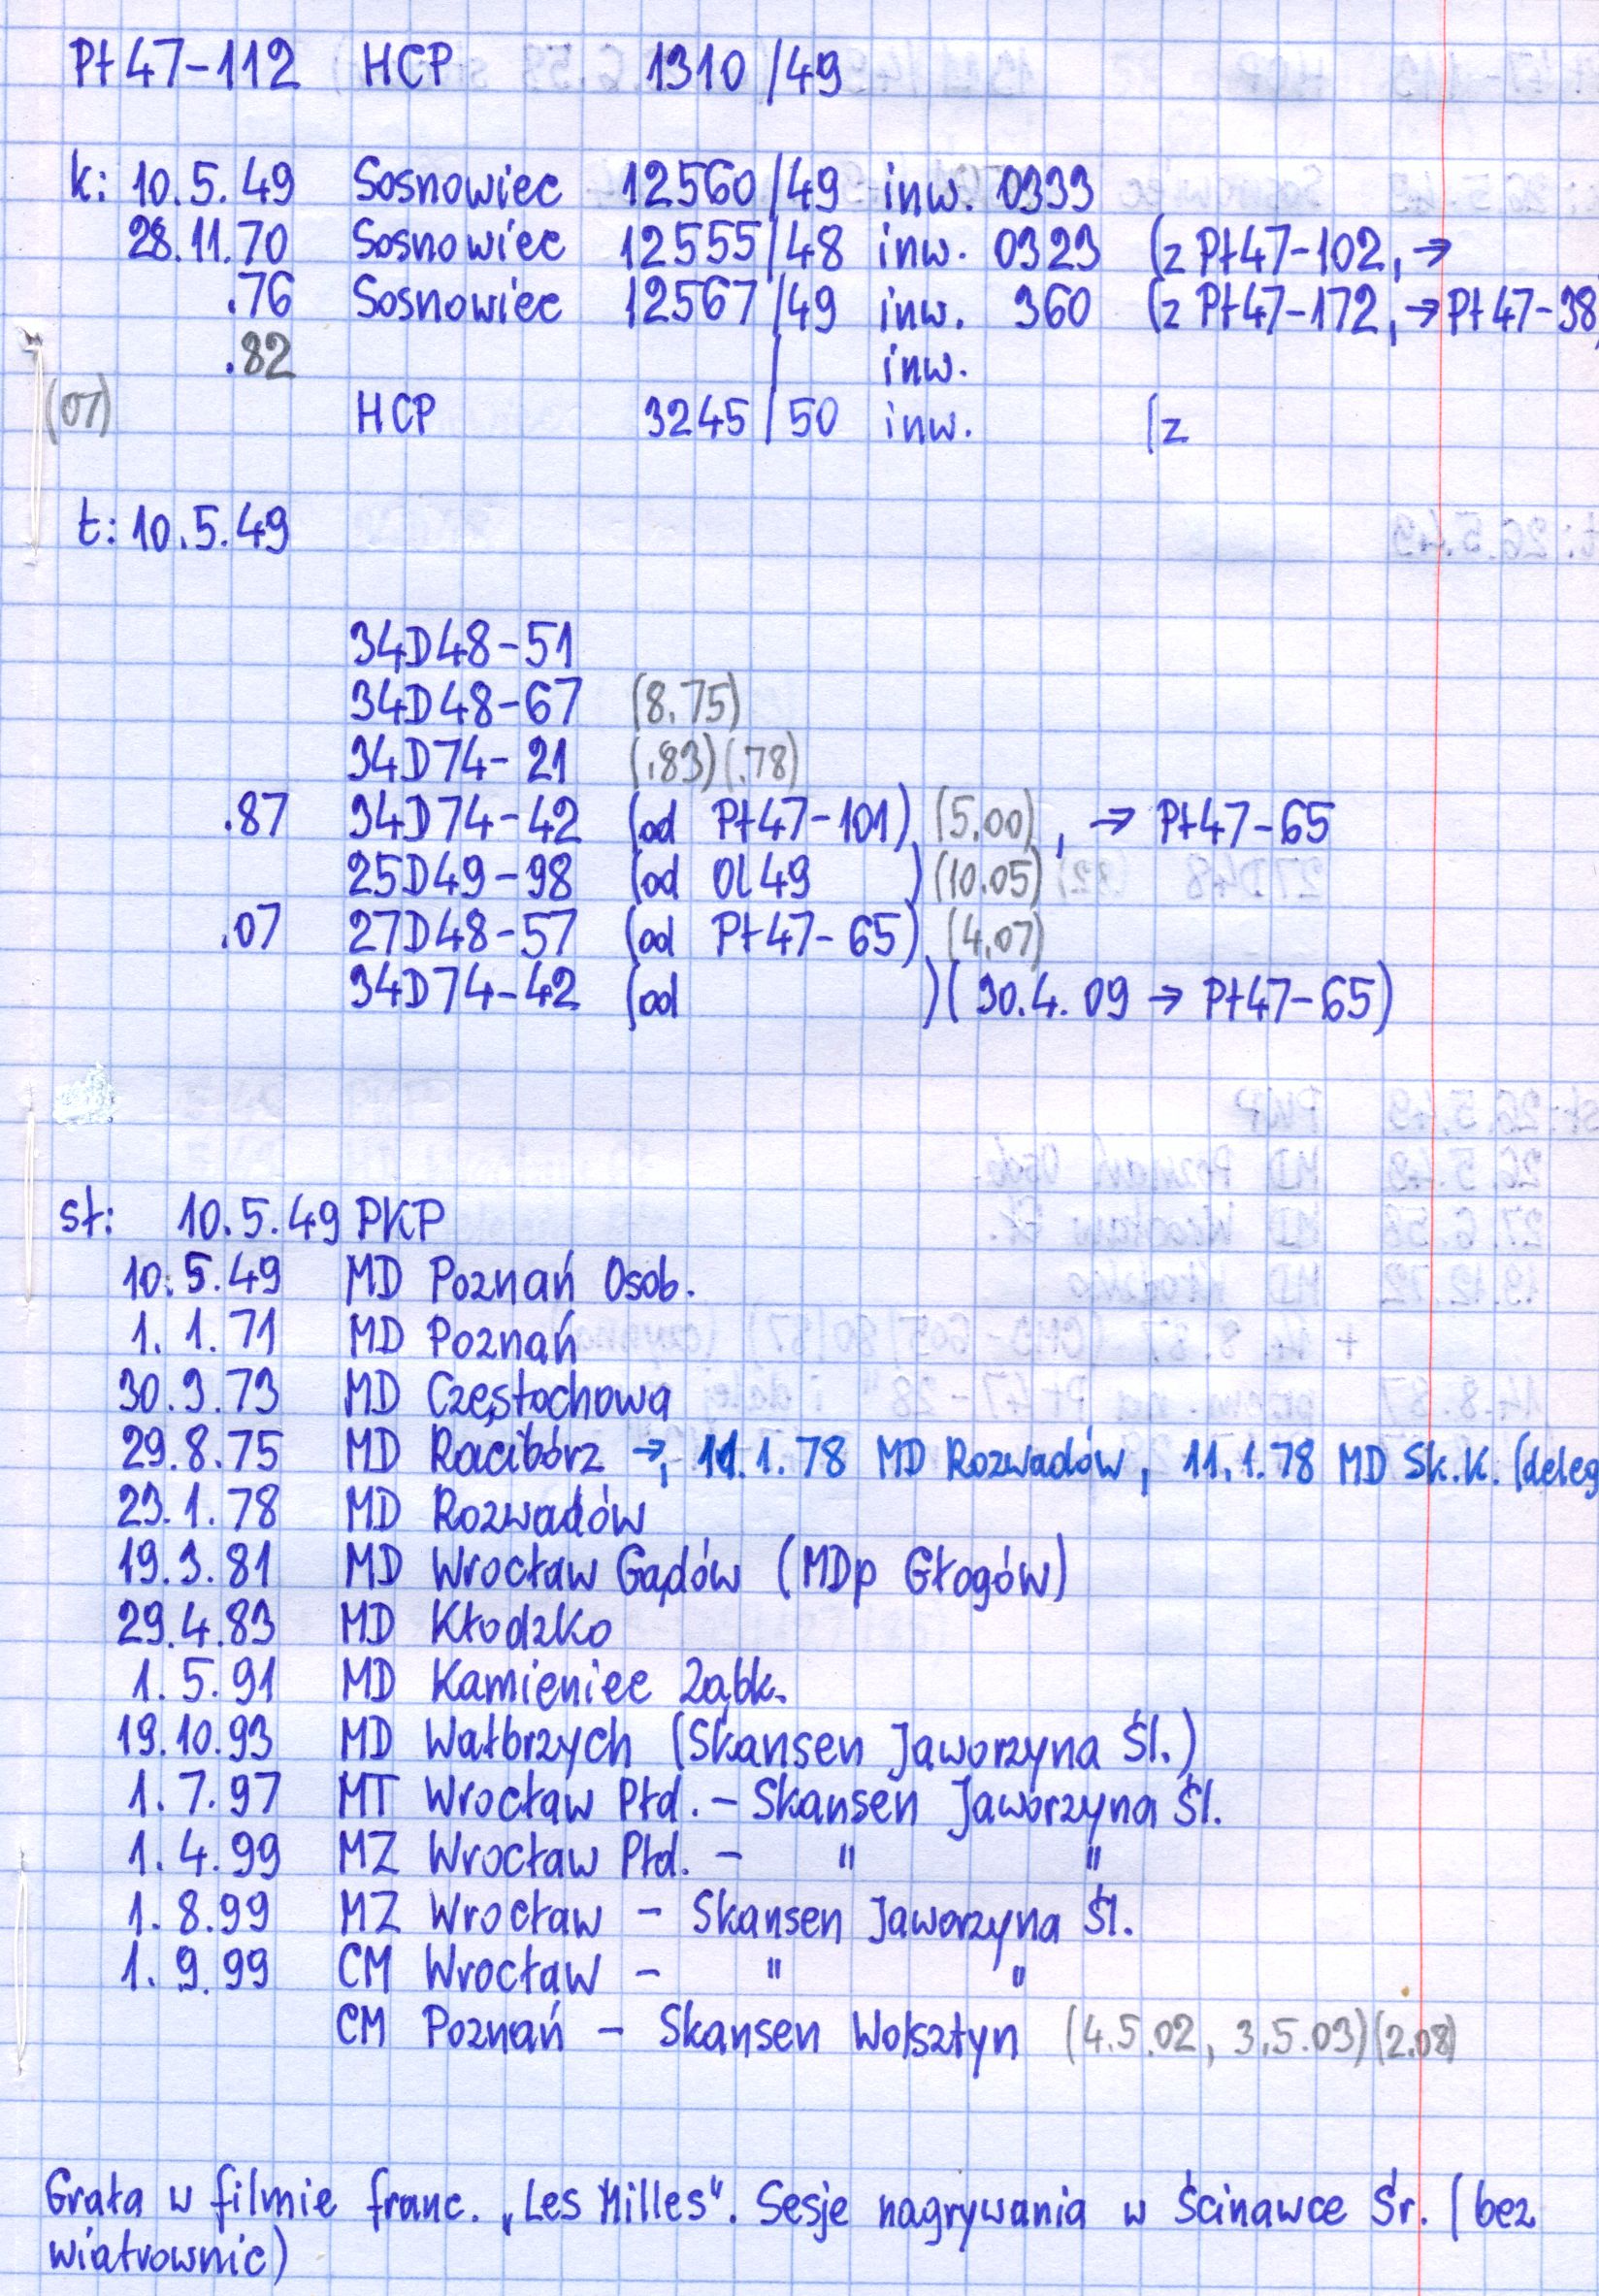 Pt47-112 HCP 1310/49
k: 10.5.49 Sosnowiec 12560/49 inw. 0333
28.11.70 Sosnowiec 12555/48 inw. 0323 (z Pt47-102, →
.76 Sosnowiec 12567/49 inw. 360 (z Pt47-172, → Pt47-38)
.82 / inw.
(07) HCP 3245/50 inw. (z
t: 10.5.49
34D48-51
34D48-67 (8.75)
34D74-21 (.83)(.78)
.87 34D74-42 (od Pt47-101) (5.00), → Pt47-65
25D49-98 (od Ol49 ) (10.05)
.07 27D48-57 (od Pt47-65) (4.07)
34D74-42 (od )(30.4.09 → Pt47-65)
st: 10.5.49 PKP
10.5.49 MD Poznań Osob.
1.1.71 MD Poznań
30.3.73 MD Częstochowa
29.8.75 MD Racibórz →, 11.1.78 MD Rozwadów, 11.1.78 MD Sk.K. (deleg
23.1.78 MD Rozwadów
19.3.81 MD Wrocław Gądów (MDp Głogów)
29.4.83 MD Kłodzko
1.5.91 MD Kamieniec Ząbk.
19.10.93 MD Wałbrzych (Skansen Jaworzyna Śl.)
1.7.97 MT Wrocław Płd. - Skansen Jaworzyna Śl.
1.4.99 MZ Wrocław Płd. - " "
1.8.99 MZ Wrocław - Skansen Jaworzyna Śl.
1.9.99 CM Wrocław - " "
CM Poznań - Skansen Wolsztyn (4.5.02, 3.5.03)(2.08)
Grała w filmie franc. „Les Milles". Sesje nagrywania w Ścinawce Śr. (bez
wiatrownic)